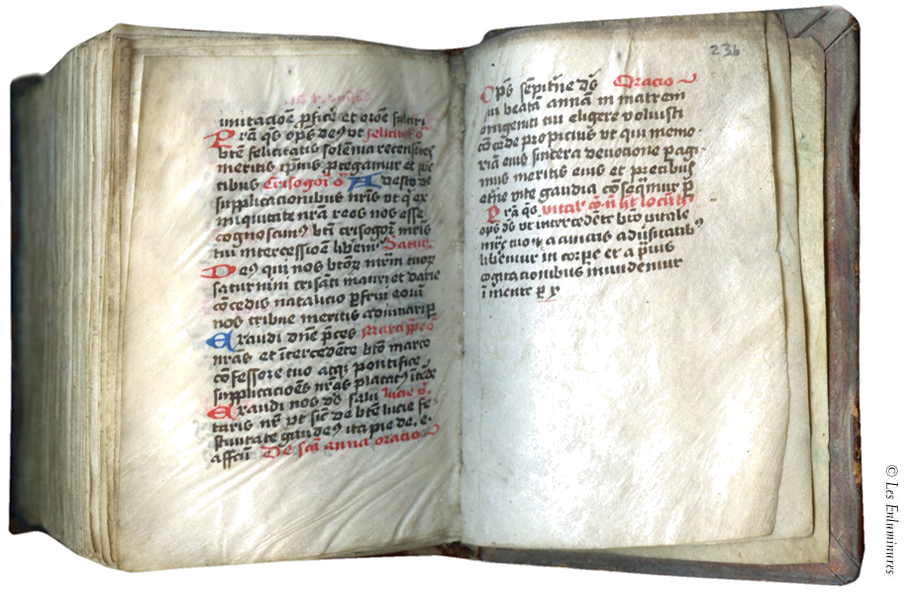 imitacioẽ ꝑfice et oрõе fulciri
Pr̃a q̃s op̃s deꝰ ut felicitet᷑ õ
bt̃e felicitatis solẽnia recensẽtes
meritis ip̃ius ꝓtegamur et pre
cibus Crisogoni õ Adesto dñe
supplicacionibus nr̃is ut q̃ ex
iniquitate nr̃a reos nos esse
cognoscimꝰ bt̃i crisogoni mr̃is
tui intercessiõe libem᷑ Satur.
Deꝰ qui nos btõꝝ mr̃m tuoꝝ
saturnini crisãti mauri et darie
cõcedis natalicio ꝑfrui eoꝝ
nos tribue meritis adiuvari ꝑ
Exaudi dñe p̃ces Marci ꝓp̃e õ
nr̃as et ĩtercedẽte bt̃o marco
cõfessore tuo atqꝫ pontifice
supplicacões nr̃as placatꝰ ĩtẽde
Exaudi nos dš salu lucie õ.
taris nr̃ ut sic̃ de bt̃e lucie fe
stivitate gaudeꝰ ita pie de. e.
affc̃u De sc̃a anna oracio
236
Op̃s sẽpit̃ne dš Oracio
qui beatã annã in matrem
unigeniti tui eligere voluisti
cõcede propicius ut qui memo
riã eius sincera devocione pagi
mus meritis eius et precibus
et̃ne vite gaudia cõseq̃mur ꝑ
Pr̃a q̃s vital᷑
op̃s dš ut intercedẽte bt̃o vitale
mr̃e tuo et a cunctis adṽsitatibꝰ
liberemur in corꝑe et a p̃vis
cogitacionibus mundemur
ĩ mente ꝑ x
© Les Enluminures